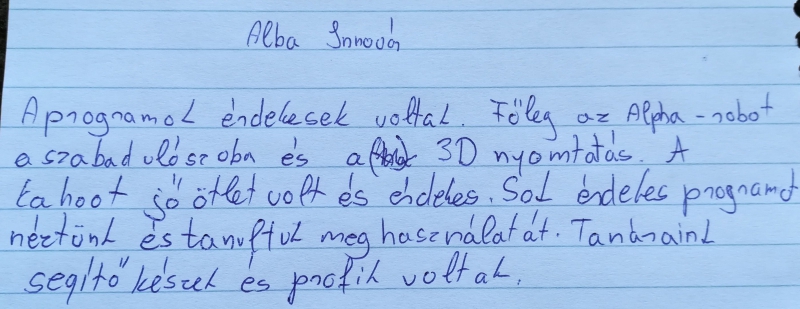 Alba Innovár
A programok érdekesek voltak. Főleg az Alpha-robot
a szabadulószoba és a 3D nyomtatás. A
kahoot jó ötlet volt és érdekes. Sok érdekes programot
néztünk és tanultuk meg használatát. Tanáraink
segítőkészek és profik voltak.